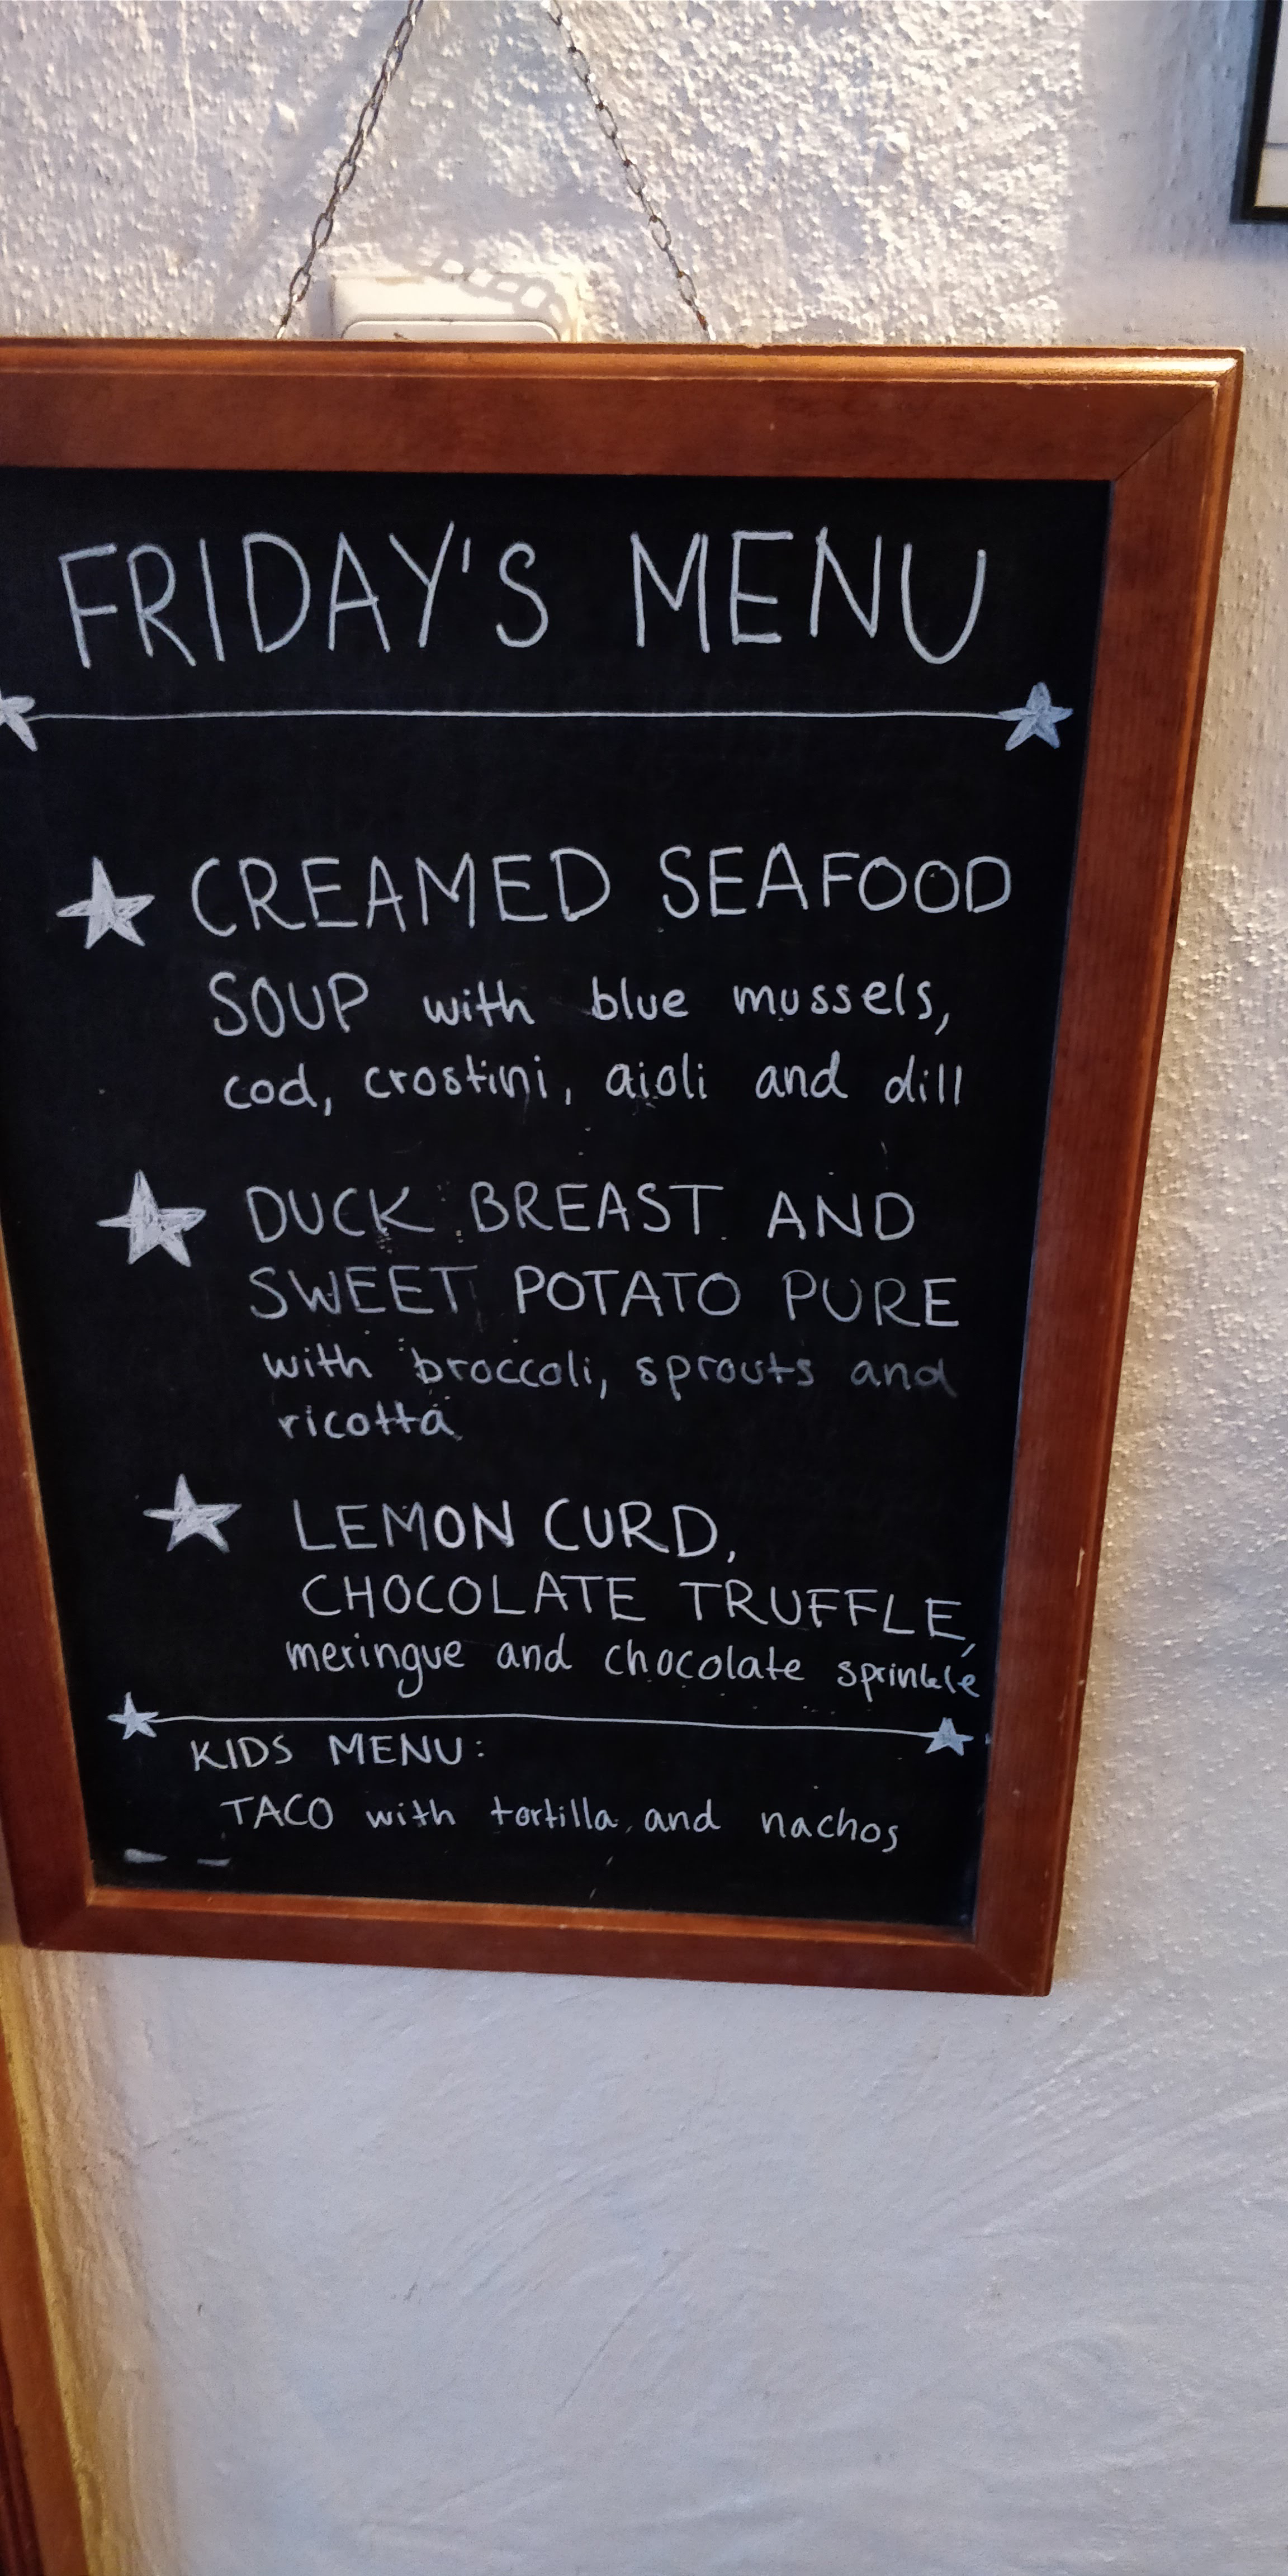 FRIDAY'S MENU
CREAMED SEAFOOD
SOUP with blue mussels,
cod, crostini, aioli and dill
DUCK BREAST AND
SWEET POTATO PURE
with broccoli, sprouts and
ricotta
LEMON CURD,
CHOCOLATE TRUFFLE,
meringue and chocolate sprinkle
KIDS MENU:
TACO with tortilla and nachos